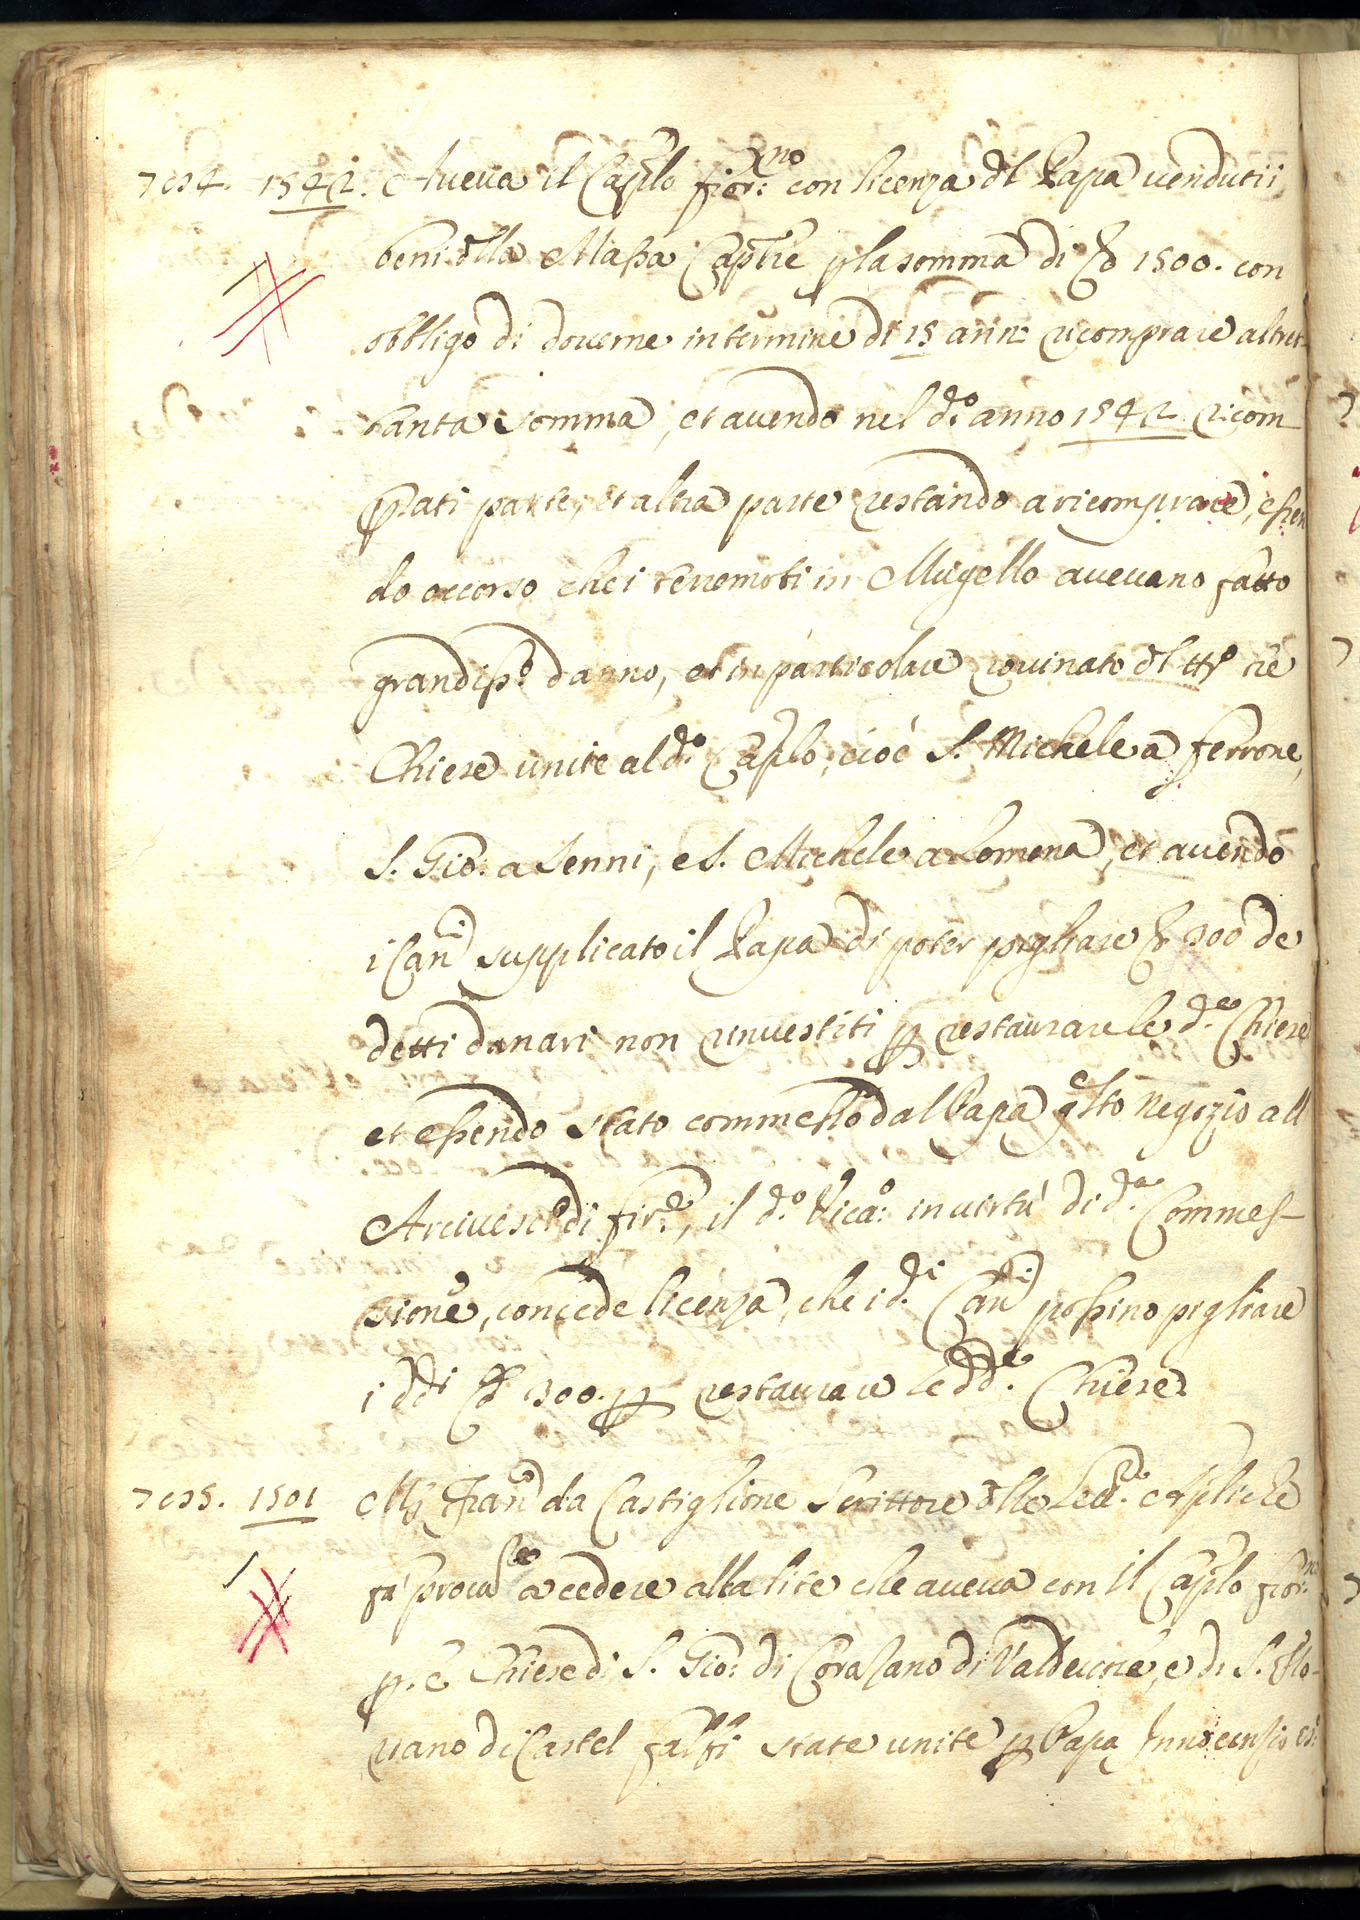 7es4. 1542. Aueua il Cap.lo fior.no con licenza dl Papa uenduti i
beni dlla Massa Cap.lre p la somma di 1500. con
obbligo di douerne in termine di 15 anni ricomprare altret-
tanta somma, et auendo nel d.o anno 1542 ricom
prati parte, et altra parte restando a ricomprare, essen
do occorso che i terremoti in Mugello aueuano fatto
grandiss.o danno, et in particolare rouinato dl tt.o tre
Chiese unite al d.o Cap.lo, cioè S. Michele a ferrone,
S. Gio: a Senni, e S. Michele a Lomena, et auendo
i Can.i supplicato il Papa di poter pigliare 300 de
detti danari non rinuestiti p restaurare le d.e Chiese
et essendo stato commesso dal Papa q.sto negozio all
Arciuesc.o di fir.e, il d.o Vica.o in uirtù di d.a Commes-
sione, concede licenza, che i d.i Can.i possino pigliare
i dd.i 300. p restaurare le dd.e Chiese.
7es5. 1501 M. Fran.o da Castiglione Scrittore dlle Lett.e
fa procu.e a cedere alla lite che aueua con il Cap.lo fior.no
p. e Chiese di S. Gio: di Corazano di Valdeuole, e di S. Flo-
riano di Castel falfi state unite p Papa Innocenzio